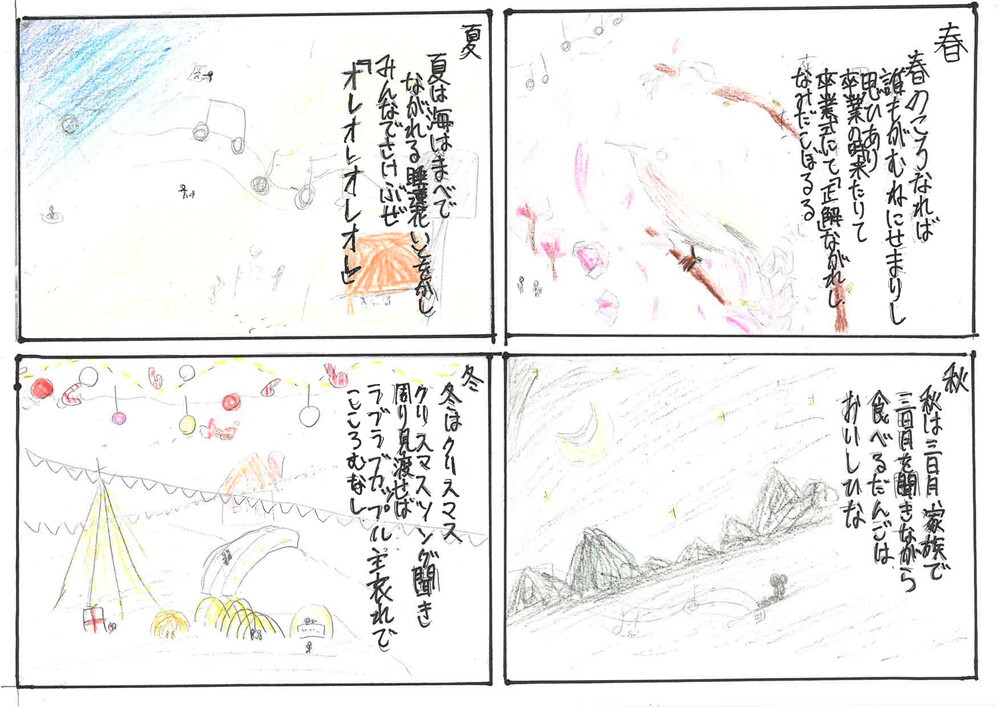 春
春のころなれば
誰もがむねにせまりし
思ひあり
卒業の時来たりて
卒業式にて「正解」ながれし
なみだこぼるる
夏
夏は海はまべで
ながれる睡蓮花いとをかし
みんなでさけぶぜ
「オレオレオレオレ」
秋
秋は三日月、家族で
三日月を聞きながら
食べるだんごは
おいしひな
冬
冬はクリスマス
クリスマスソング聞き
周り見渡せば
ラブラブカップル主哀れで
こころむなし